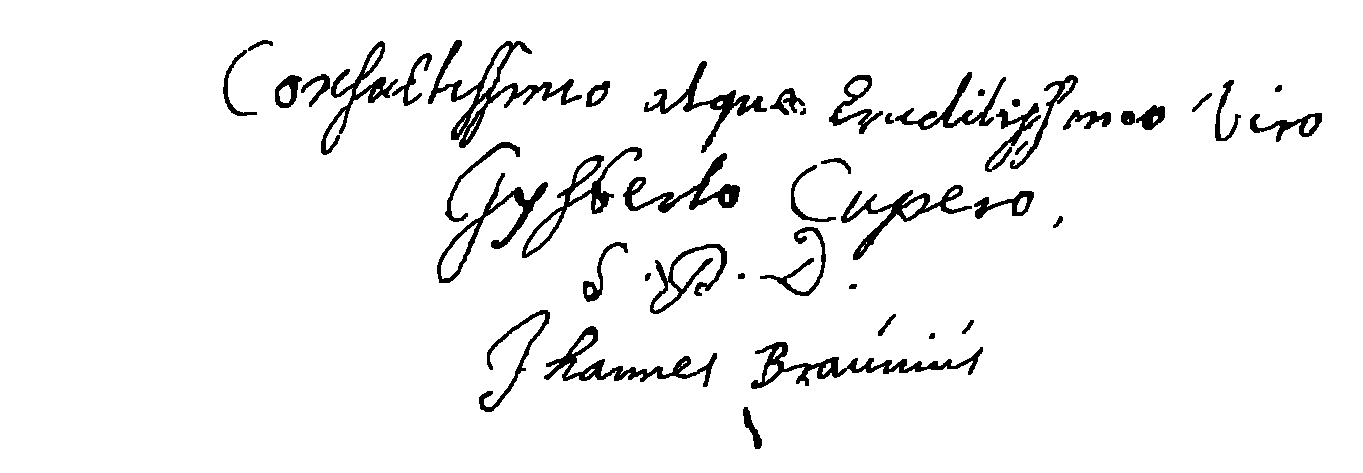 Consultissimo atque Eruditissimo Viro
Gysberto Cupero,
S. P. D.
Jhannes Braunius